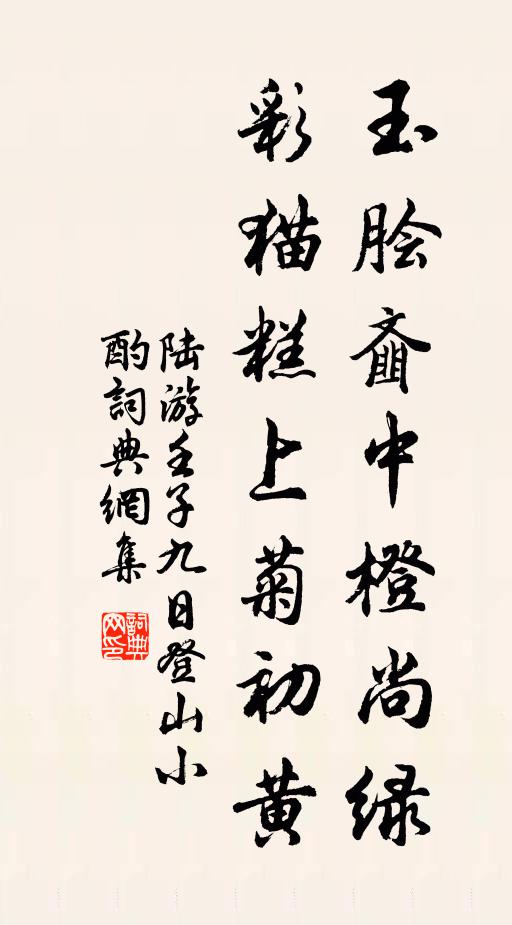 玉脍齑中橙尚绿
彩猫糕上菊初黄
陆游壬子九日登山小
酌詞典網集
詞典网印